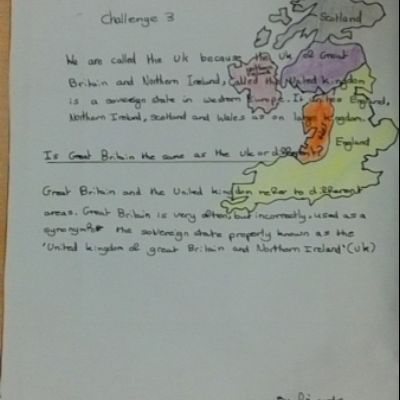 Challenge 3
Scotland
We are called the UK because the UK of Great
Britain and Northern Ireland, called the United kingdom
is a sovereign state in western Europe. It England,
Northern Ireland, Scotland and Wales as on kingdom.
England
Is Great Britain the same as the UK or different?
Great Britain and the United kingdom refer to different
areas. Great Britain is very often, but incorrectly, used as a
synonym for the sovereign state properly known as the
'United kingdom of great Britain and Northern Ireland' (UK)